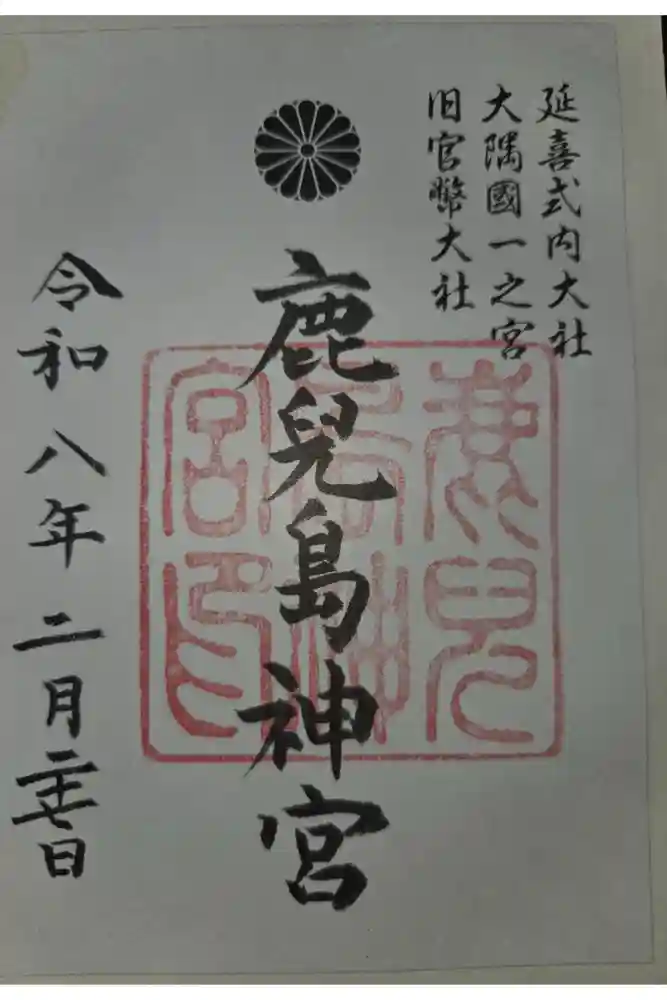 延喜式内大社
大隅國一之宮
旧官幣大社
鹿兒島神宮
鹿兒島神宮印
令和八年二月二十七日